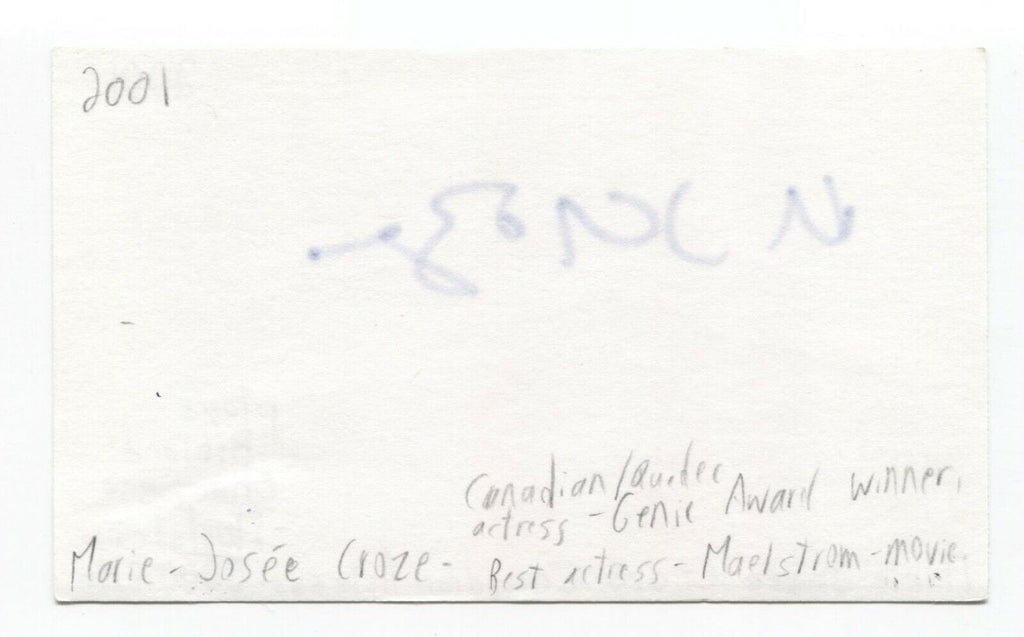 2001
Canadian/Quebec
actress - Genie Award winner,
Marie-Josée Croze - Best actress - Maelstrom - movie.